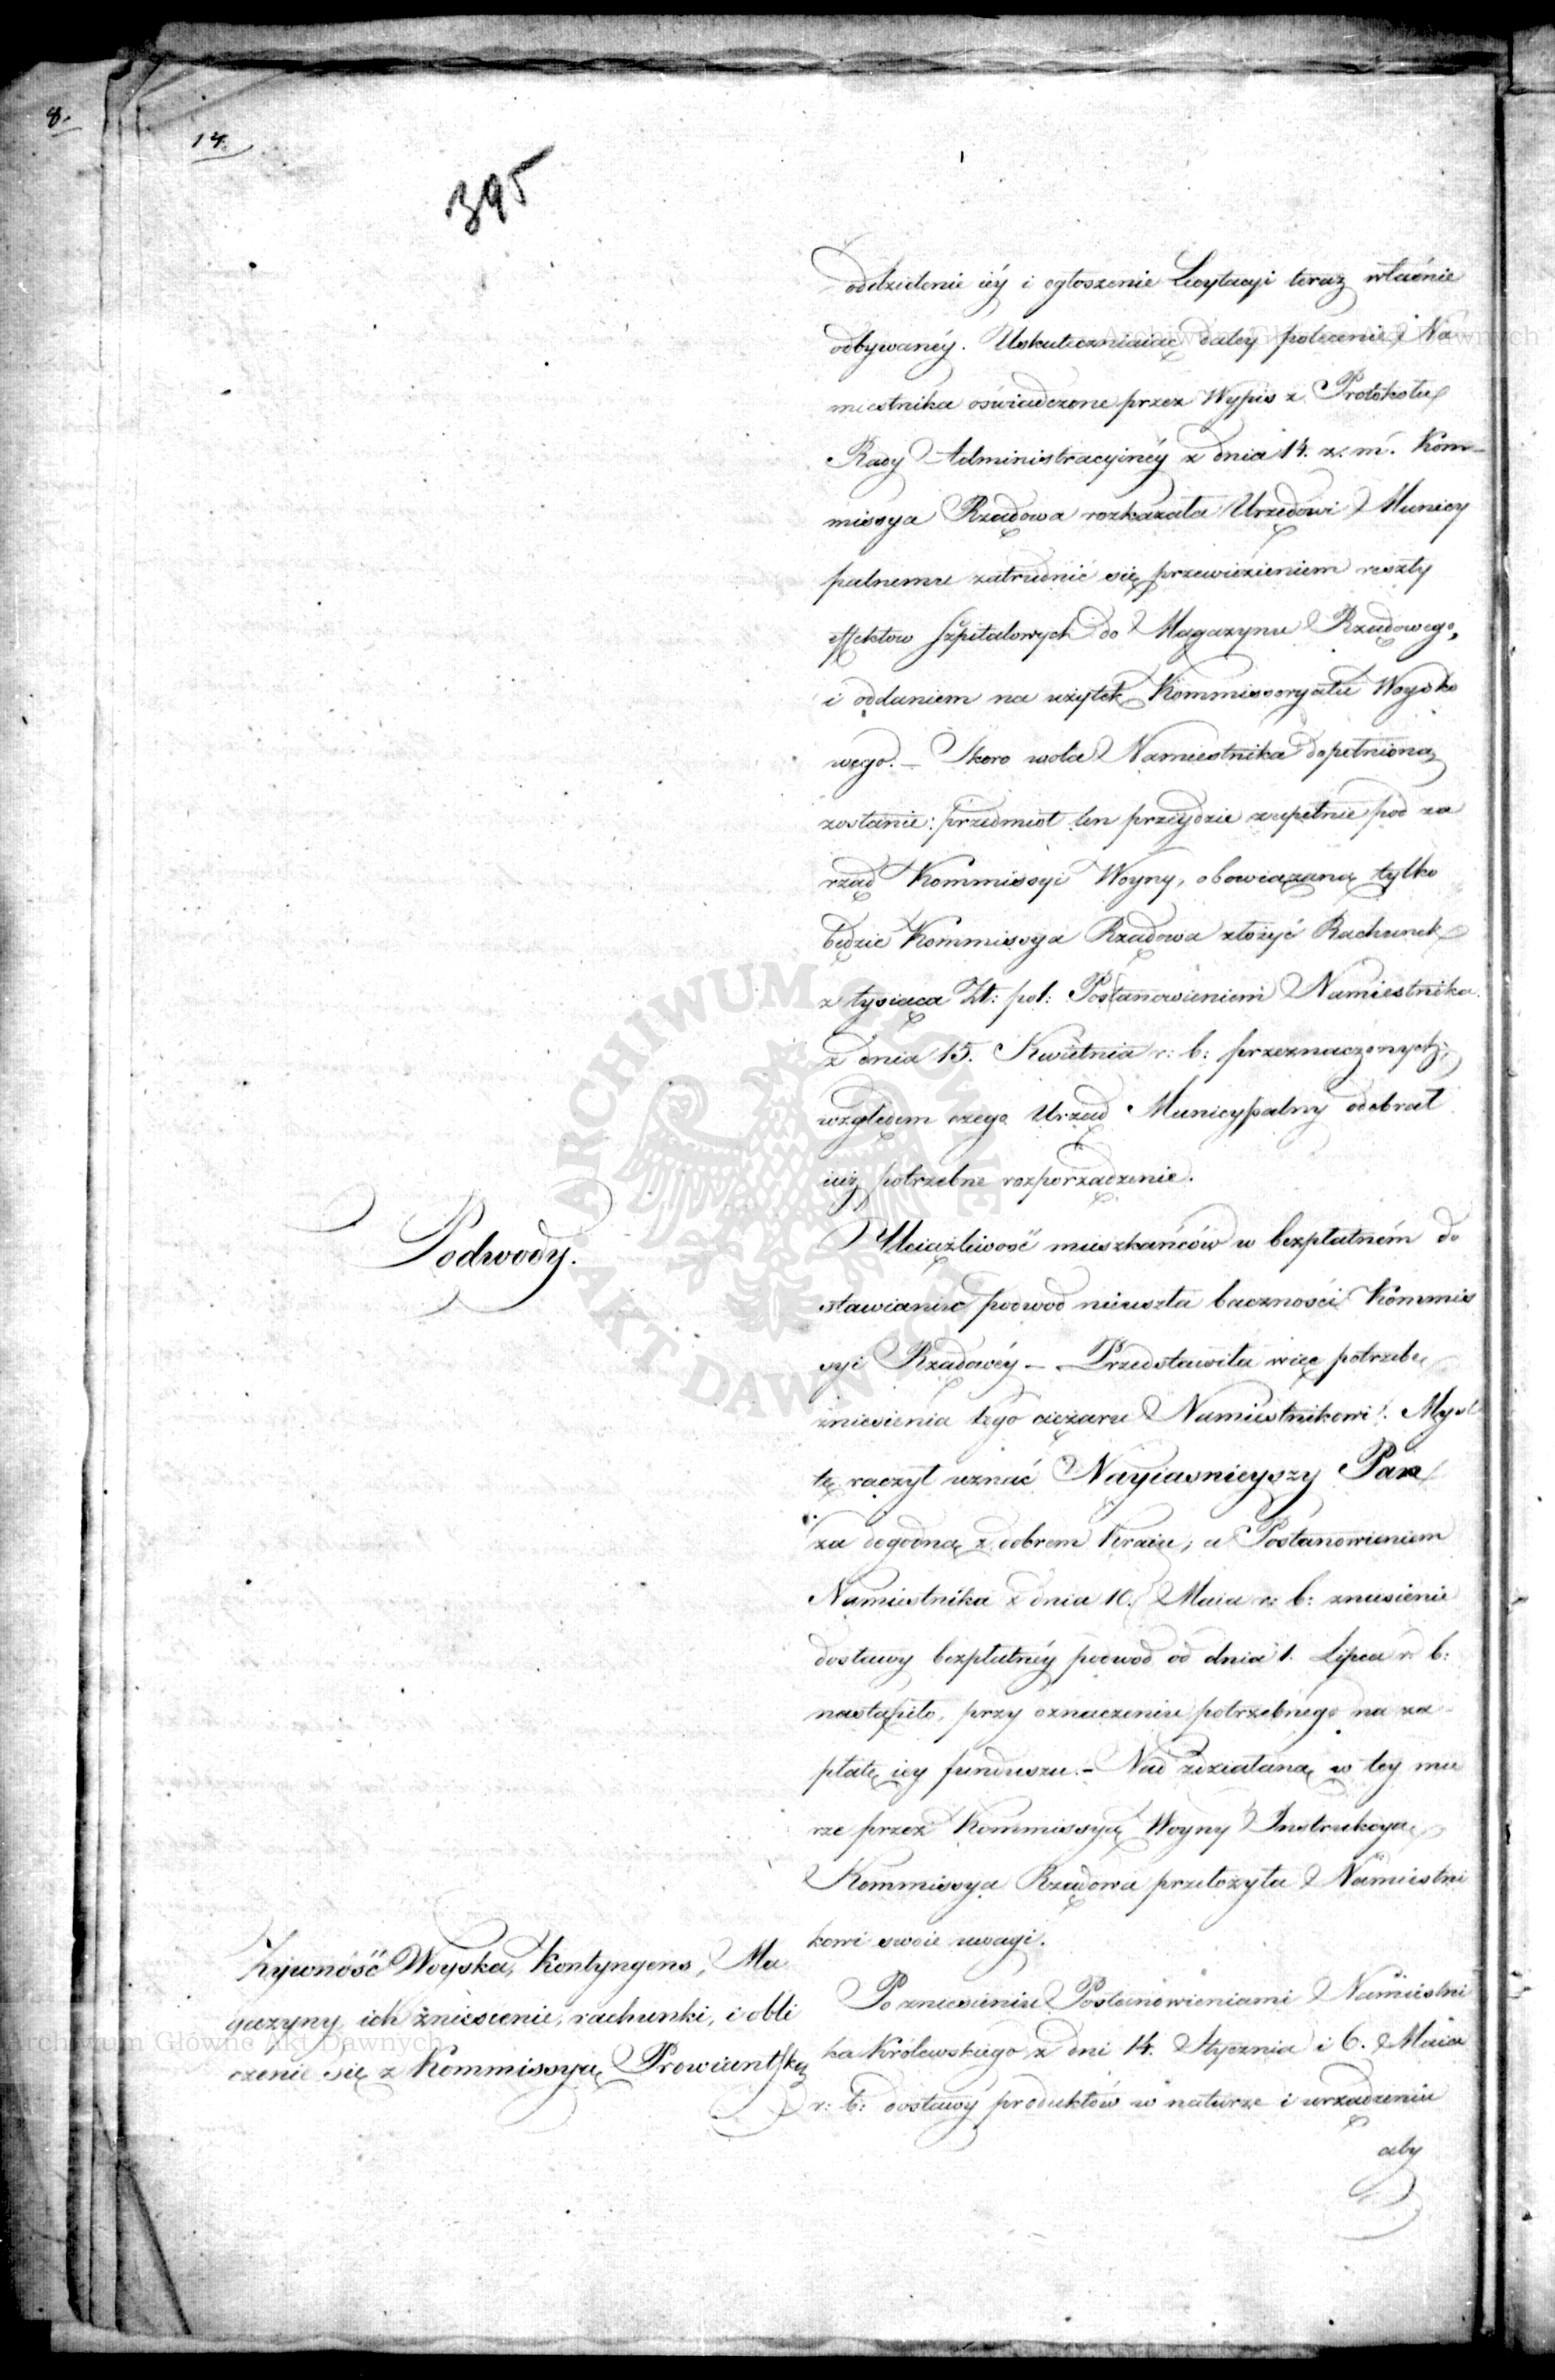 8.
14.
395
oddzielenie iéy i ogłoszenie Licytacyi teraz właśnie
odbywanéy. Uskuteczniaiąc daley polecenie Na
miestnika oświadczone przez Wypis z Protokołu
Rady Administracyinéy z dnia 14. z. m. Kom-
missya Rządowa rozkazała Urzędowi Municy
palnemu zatrudnić się przewiezieniem reszty
effektow Szpitalowych do Magazynu Rządowego,
i oddaniem na użytek Kommissoryatu Woysko
wego. – Skoro wola Namiestnika dopełnioną
zostanie: przedmiot ten przeydzie zupełnie pod za
rząd Kommissyi Woyny, obowiązaną tylko
będzie Kommissya Rządowa złożyć Rachunek
z tysiąca Zł: pol: Postanowieniem Namiestnika
z dnia 15. Kwietnia r: b: przeznaczonych,
względem czego Urząd Municypalny odebrał
iuż potrzebne rozporządzenie.
Podwody.
Uciążliwość mieszkańców w bezpłatném do
stawianiu podwod nieuszła baczności Kommis
syi Rządowéy – Przedstawiła więc potrzebę
zniesienia tego ciężaru Namiestnikowi. Myśl
tę raczył uznać Nayiaśnieyszy Pan
za dogodną z dobrem Kraiu, a Postanowieniem
Namiestnika z dnia 10. Maia r: b: zniesienie
dostawy bezpłatnéy podwod od dnia 1. Lipca r: b:
nastąpiło, przy oznaczeniu potrzebnego na za-
płatę iey funduszu. – Nad zdziałaną w tey mie
rze przez Kommissyą Woyny Instrukcyą,
Kommissya Rządowa przełożyła Namiestni
kowi swoie uwagi.
Żywność Woyska, Kontyngens, Ma
gazyny, ich zniesienie, rachunki, i obli
czenie się z Kommissyą Prowiantską
Po zniesieniu Postanowieniami Namiestni
ka Królewskiego z dni 14. Stycznia i 6. Maia
r: b: dostawy produktów w naturze i urządzeniu
aby
ARCHIWUM GŁÓWNE AKT DAWNYCH
Archiwum Główne Akt Dawnych
Archiwum Główne Akt Dawnych